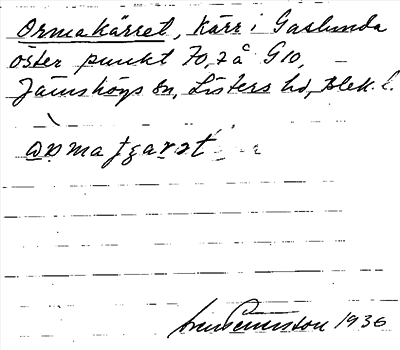 Ormakärret, Kärr i Gaslunda
öster punkt 70,7 å G10,
Jämshögs sn, Listers hd, Blek. l.
1936